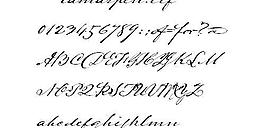 0123456789:;
ABCDEFGHIJKLM
NOPQRSTUVWXYZ
abcdefghijklmn